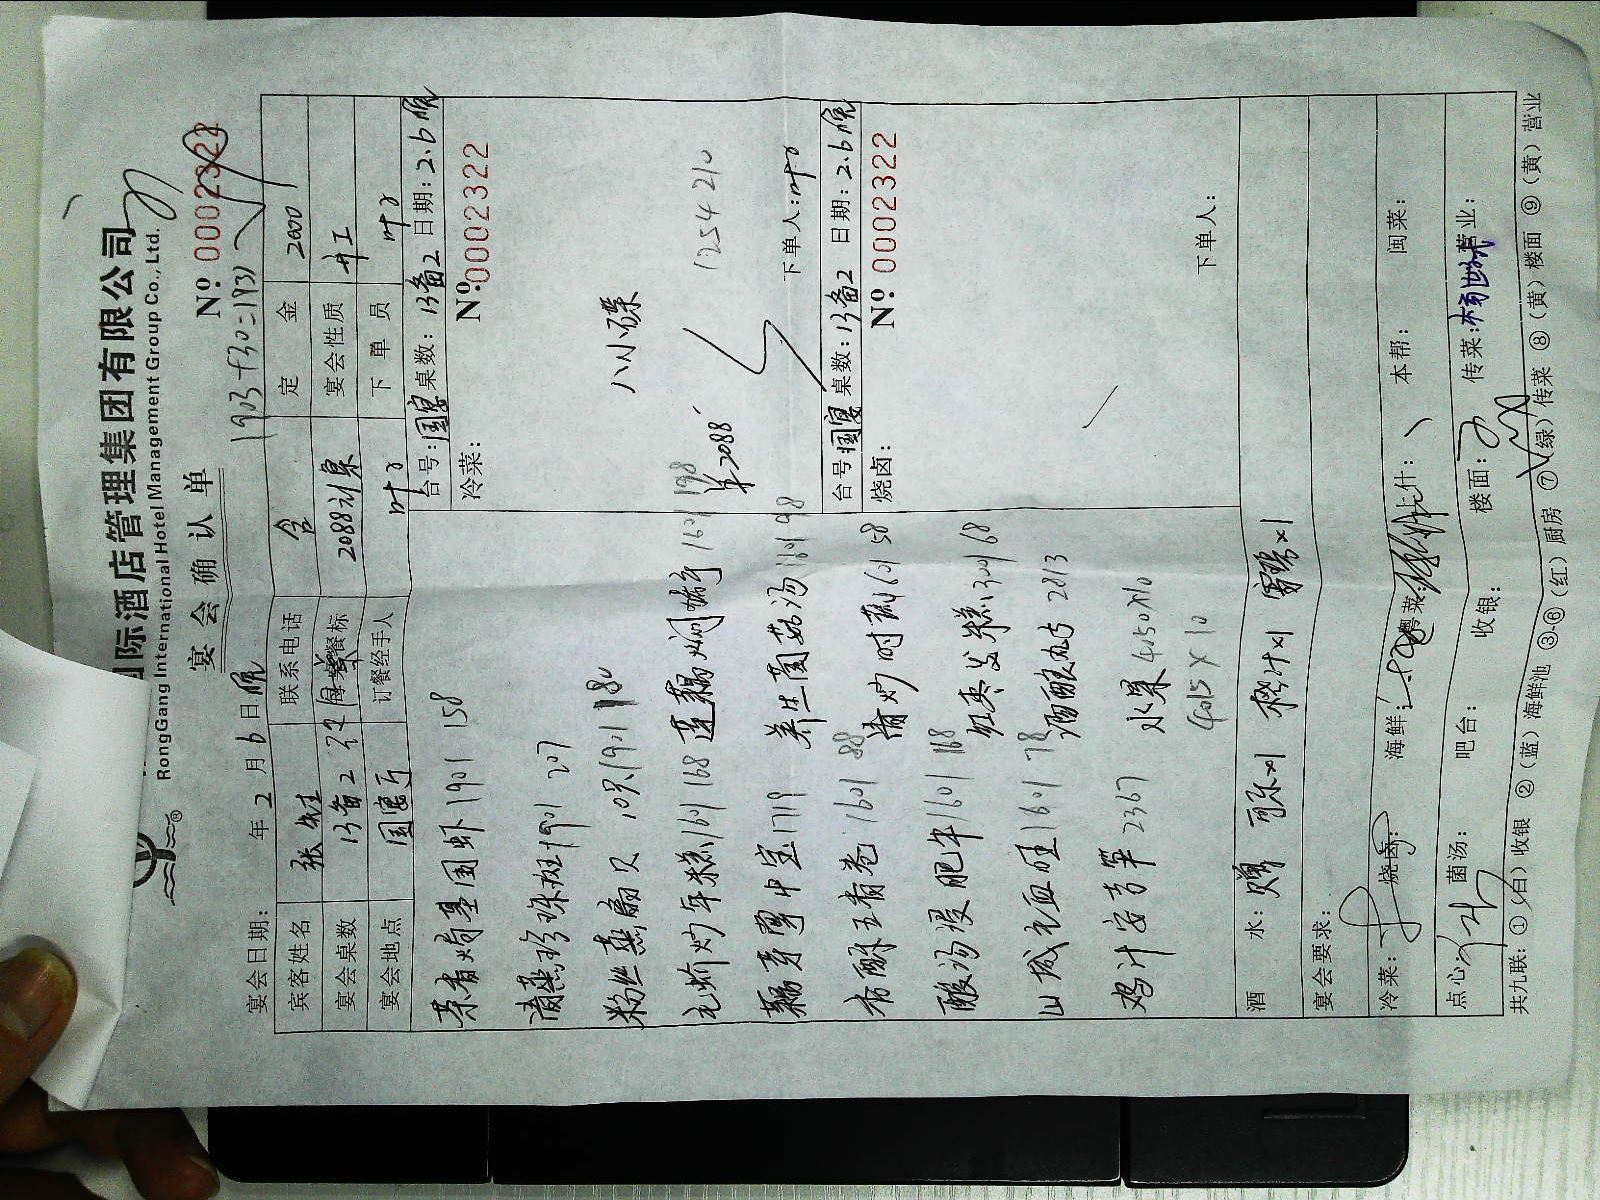 国际酒店管理集团有限公司
RongGang International Hotel Management Group Co., Ltd.
宴会确认单
Nº 0002322
宴会日期: 年 2 月 6 日晚
1903+30=1933
宾客姓名 张先生 联系电话 含 定金 2000
宴会桌数 13备2 每桌餐标 2088 宴会性质 开工
宴会地点 国宴厅 订餐经手人 叶 下单员 叶
台号: 国宴 桌数: 13备2 日期: 2.6晚
冷菜:
Nº 0002322
八小碟
单2088
1254 210
下单人: 叶
台号 国宴 桌数: 13备2 日期: 2.6晚
烧卤:
Nº 0002322
下单人:
茶香焗基围虾 1901 158
清蒸珍珠斑 1901 207
粉丝蒸扇贝 1901 180
毛蚶炒年糕 1601 168
莲藕焖猪手 1601 198
1719
养生菌菇汤 1601 98
香酥五香卷 1601 88
清炒时蔬 1601 58
酸汤浸肥牛 1601 168
红枣发糕 3001 68
山城毛血旺 1601 78
酒酿丸子 2813
鸡汁安吉笋 2367
水果 4050×10
4015×10
酒水: 赠 可乐×1 橙汁×1 雪碧×1
宴会要求:
冷菜: 烧卤: 海鲜: 粤菜: 上什: 本帮: 闽菜:
点心: 菌汤: 吧台: 收银: 楼面: 传菜: 营业:
共九联: ①(白)收银 ②(蓝)海鲜池 ③-⑥(红)厨房 ⑦(绿)传菜 ⑧(黄)楼面 ⑨(黄)营业